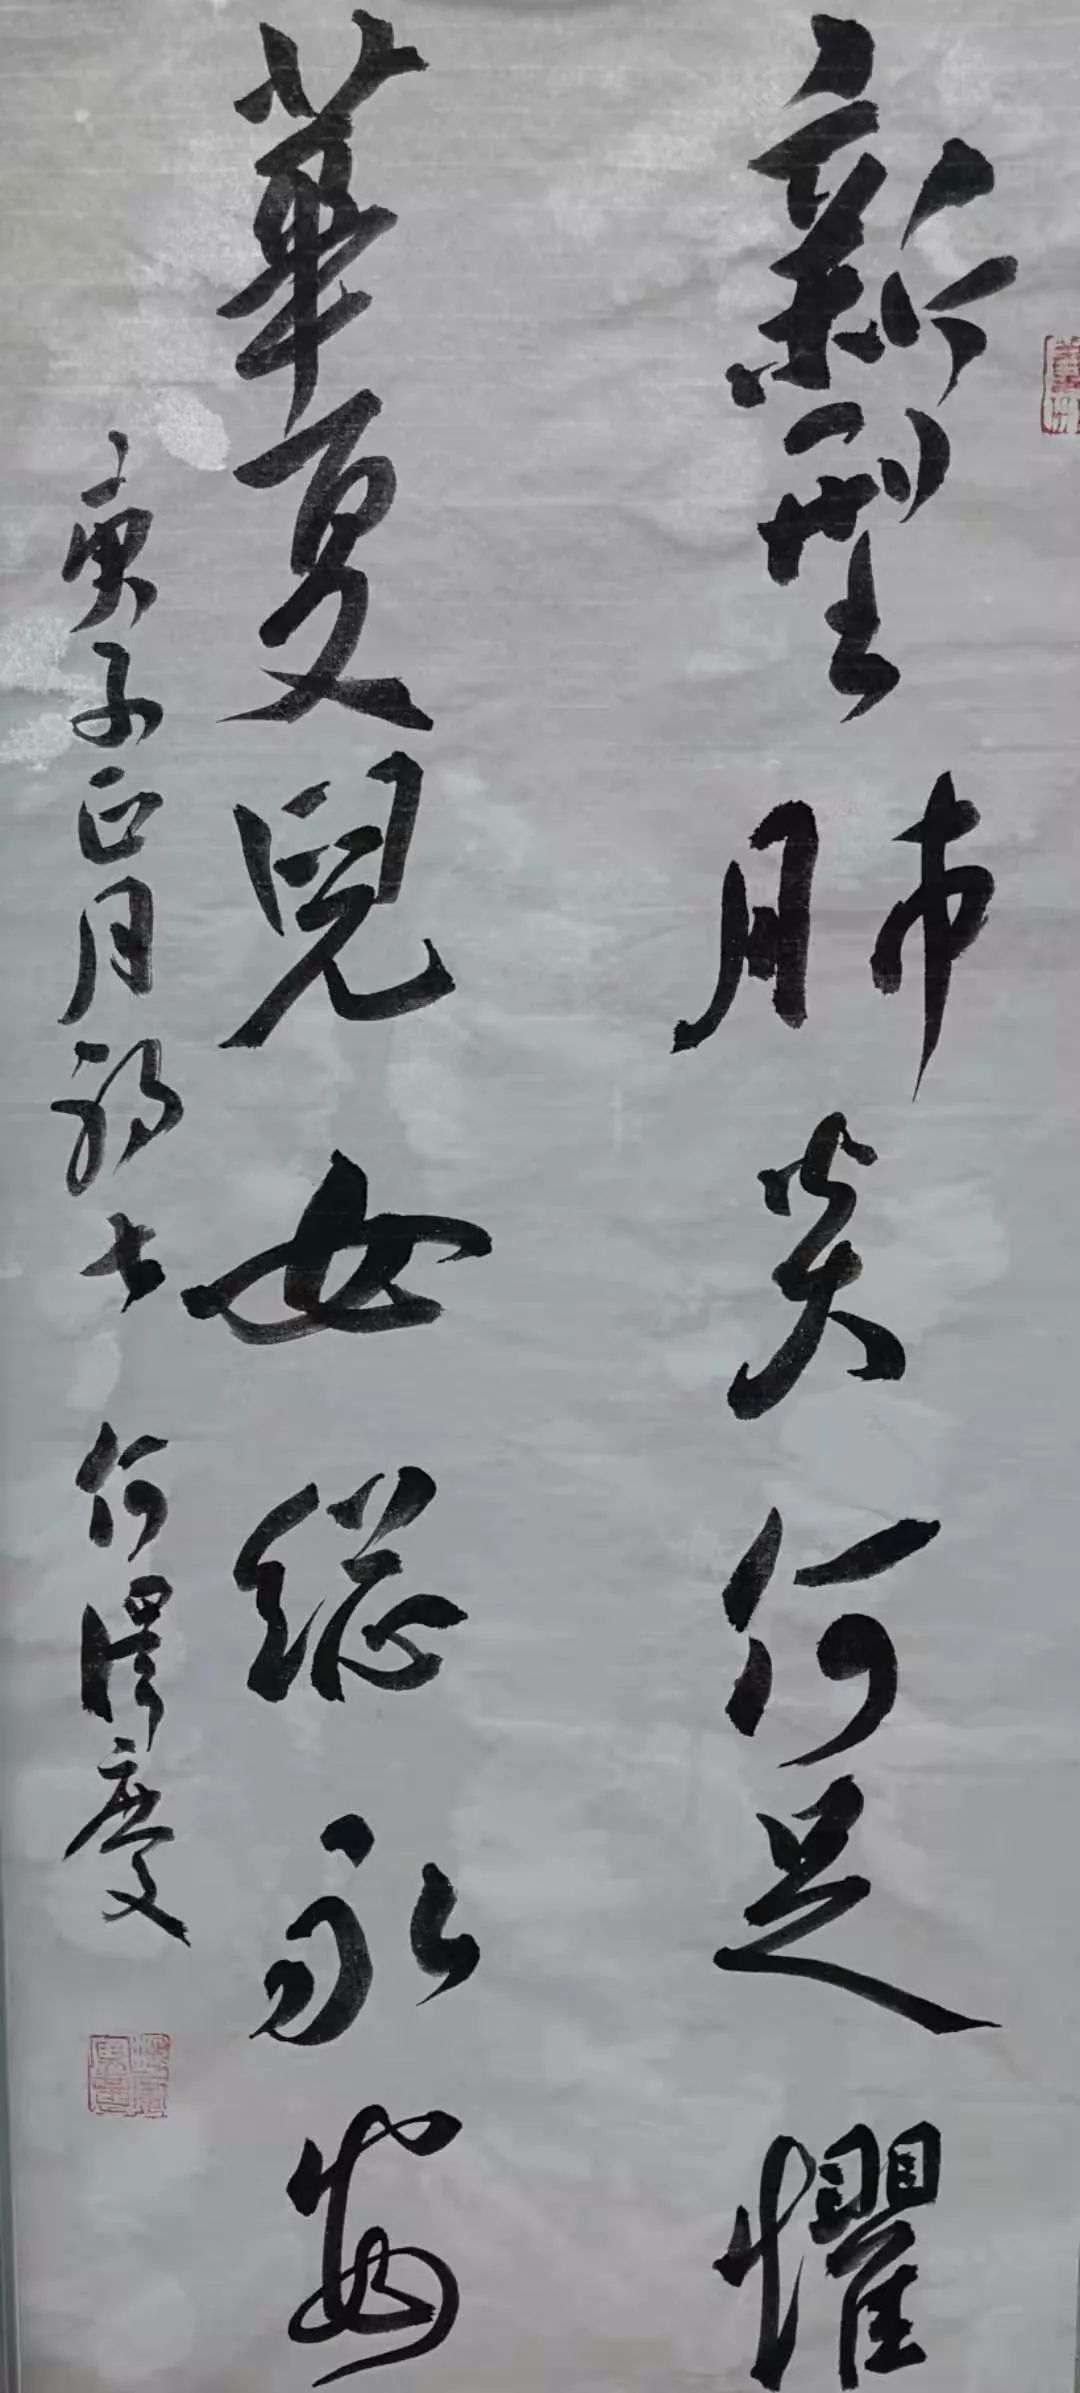 新型肺炎何足懼
華夏兒女總永安
庚子正月初七 何澤慶